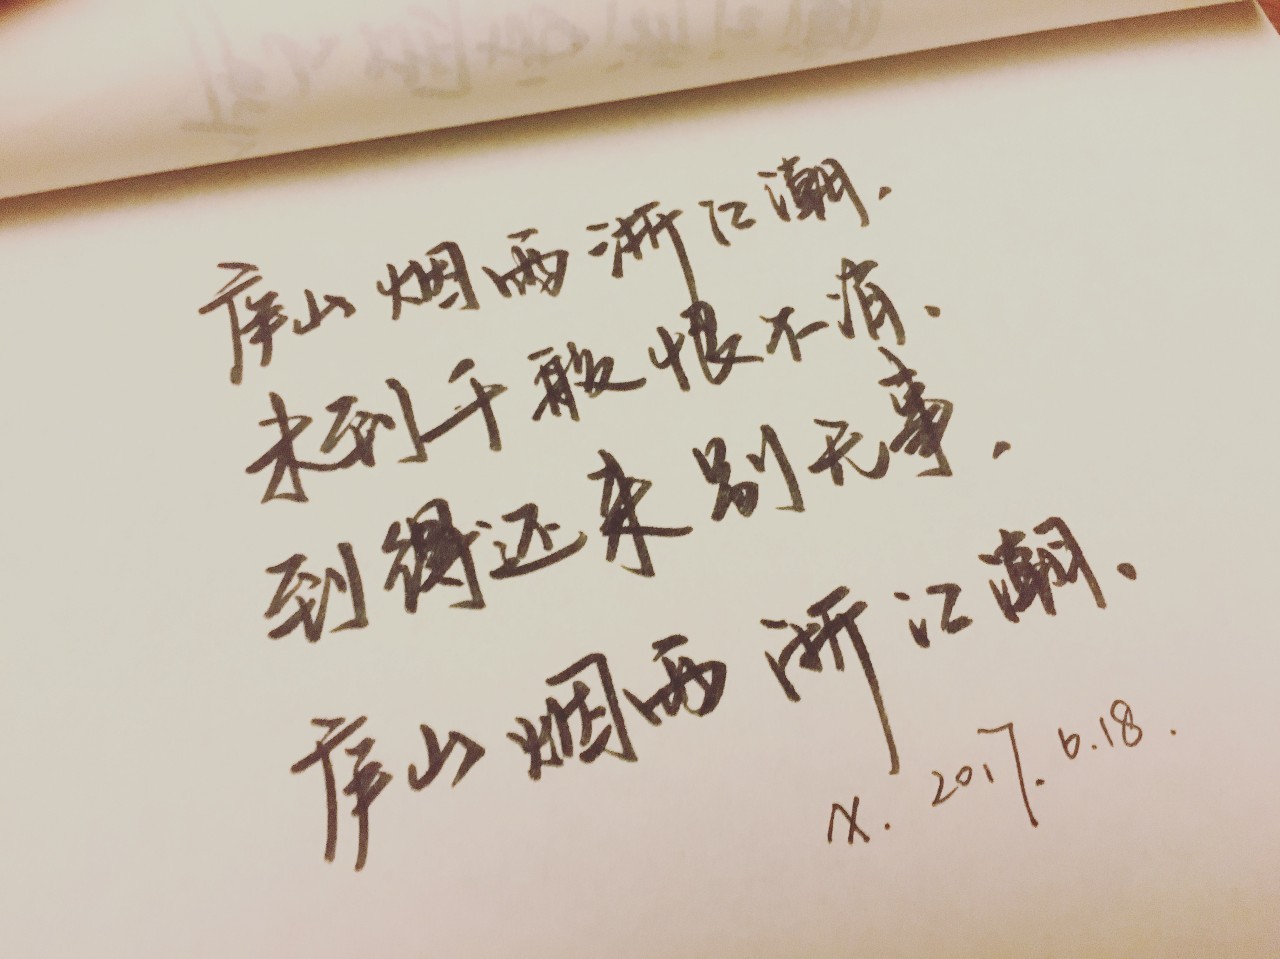 庐山烟雨浙江潮.
未到千般恨不消.
到得还来别无事.
庐山烟雨浙江潮.
X. 2017. 6.18.